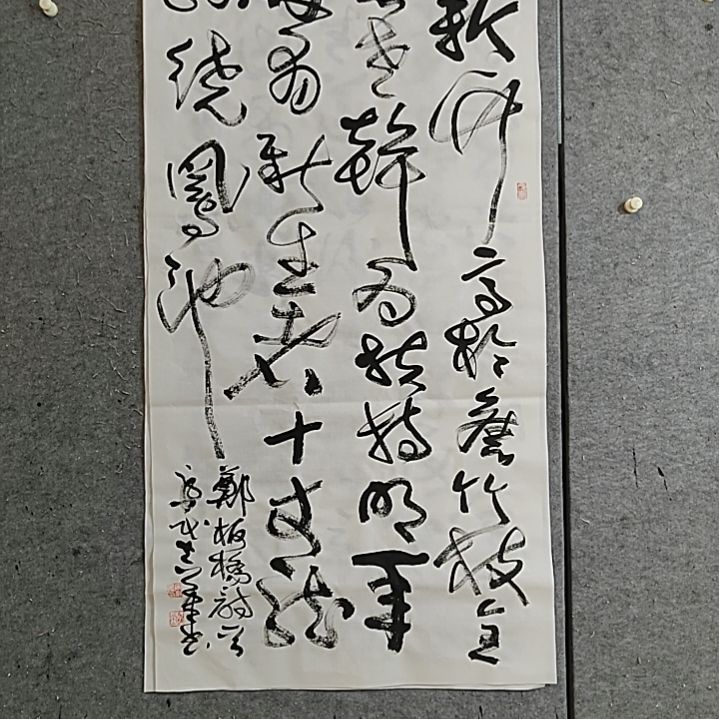 新竹高於舊竹枝全
老幹為扶持明年
有新生者十丈龍
繞鳳池
鄭板橋詩